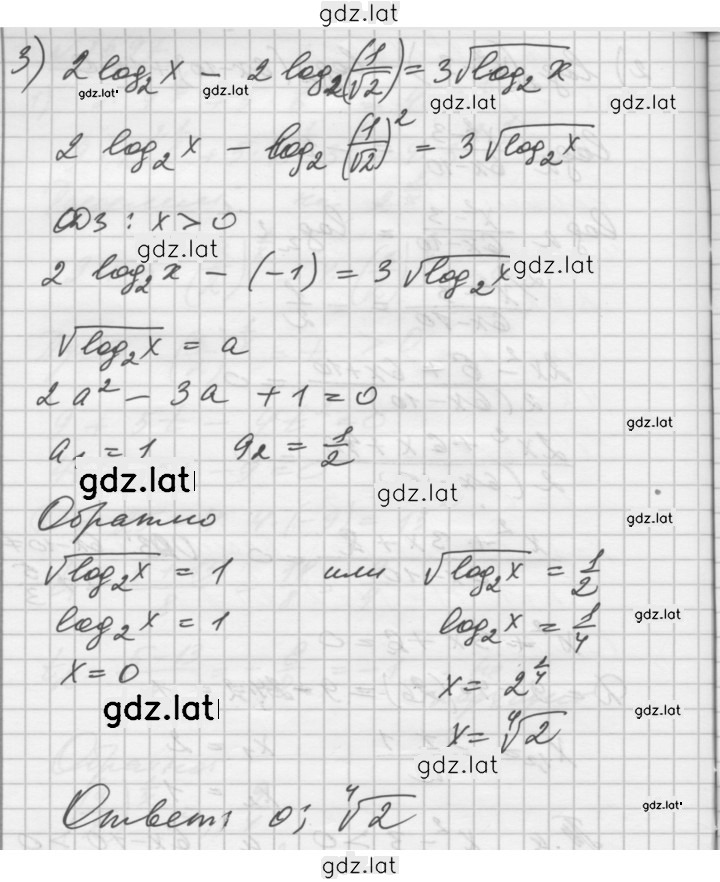 gdz.lat
3) 2 log₂ x − 2 log₂(1/√2) = 3√(log₂ x)
gdz.lat gdz.lat gdz.lat gdz.lat
2 log₂ x − log₂ (1/√2)² = 3√(log₂ x)
ОДЗ: x > 0
gdz.lat
2 log₂ x − (−1) = 3√(log₂ x) gdz.lat
√(log₂ x) = a
2a² − 3a + 1 = 0
gdz.lat
a₁ = 1 a₂ = 1/2
gdz.lat gdz.lat
Обратно gdz.lat
√(log₂ x) = 1 или √(log₂ x) = 1/2
log₂ x = 1 log₂ x = 1/4 gdz.lat
x = 0 x = 2^(1/4)
gdz.lat gdz.lat
x = ⁴√2
gdz.lat
Ответ: 0; ⁴√2 gdz.lat
gdz.lat